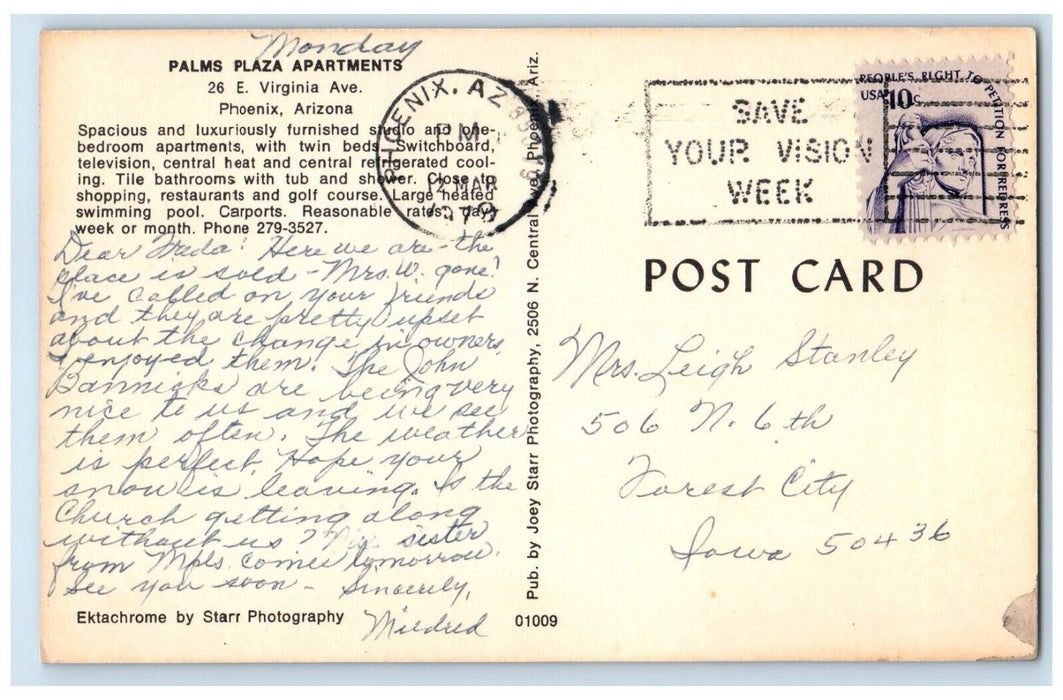 Monday
PALMS PLAZA APARTMENTS
26 E. Virginia Ave.
Phoenix, Arizona
Spacious and luxuriously furnished studio and one-
bedroom apartments, with twin beds. Switchboard,
television, central heat and central refrigerated cool-
ing. Tile bathrooms with tub and shower. Close to
shopping, restaurants and golf course. Large heated
swimming pool. Carports. Reasonable rates: day,
week or month. Phone 279-3527.
Dear Freda: Here we are - the
place is sold - Mrs. W. gone!
I've called on your friends
and they are pretty upset
about the change in owners.
I enjoyed them. The John
Bannicks are being very
nice to us and we see
them often. The weather
is perfect. Hope your
snow is leaving. Is the
Church getting along
without us? My sister
from Mpls. comes tomorrow.
See you soon - Sincerely,
Mildred
Ektachrome by Starr Photography
01009
Pub. by Joey Starr Photography, 2506 N. Central Ave., Phoenix, Ariz.
PHOENIX, AZ
PM
12 MAR
SAVE
YOUR VISION
WEEK
PEOPLE'S RIGHT TO PETITION FOR REDRESS
USA 10c
POST CARD
Mrs. Leigh Stanley
506 N. 6th
Forest City
Iowa 50436